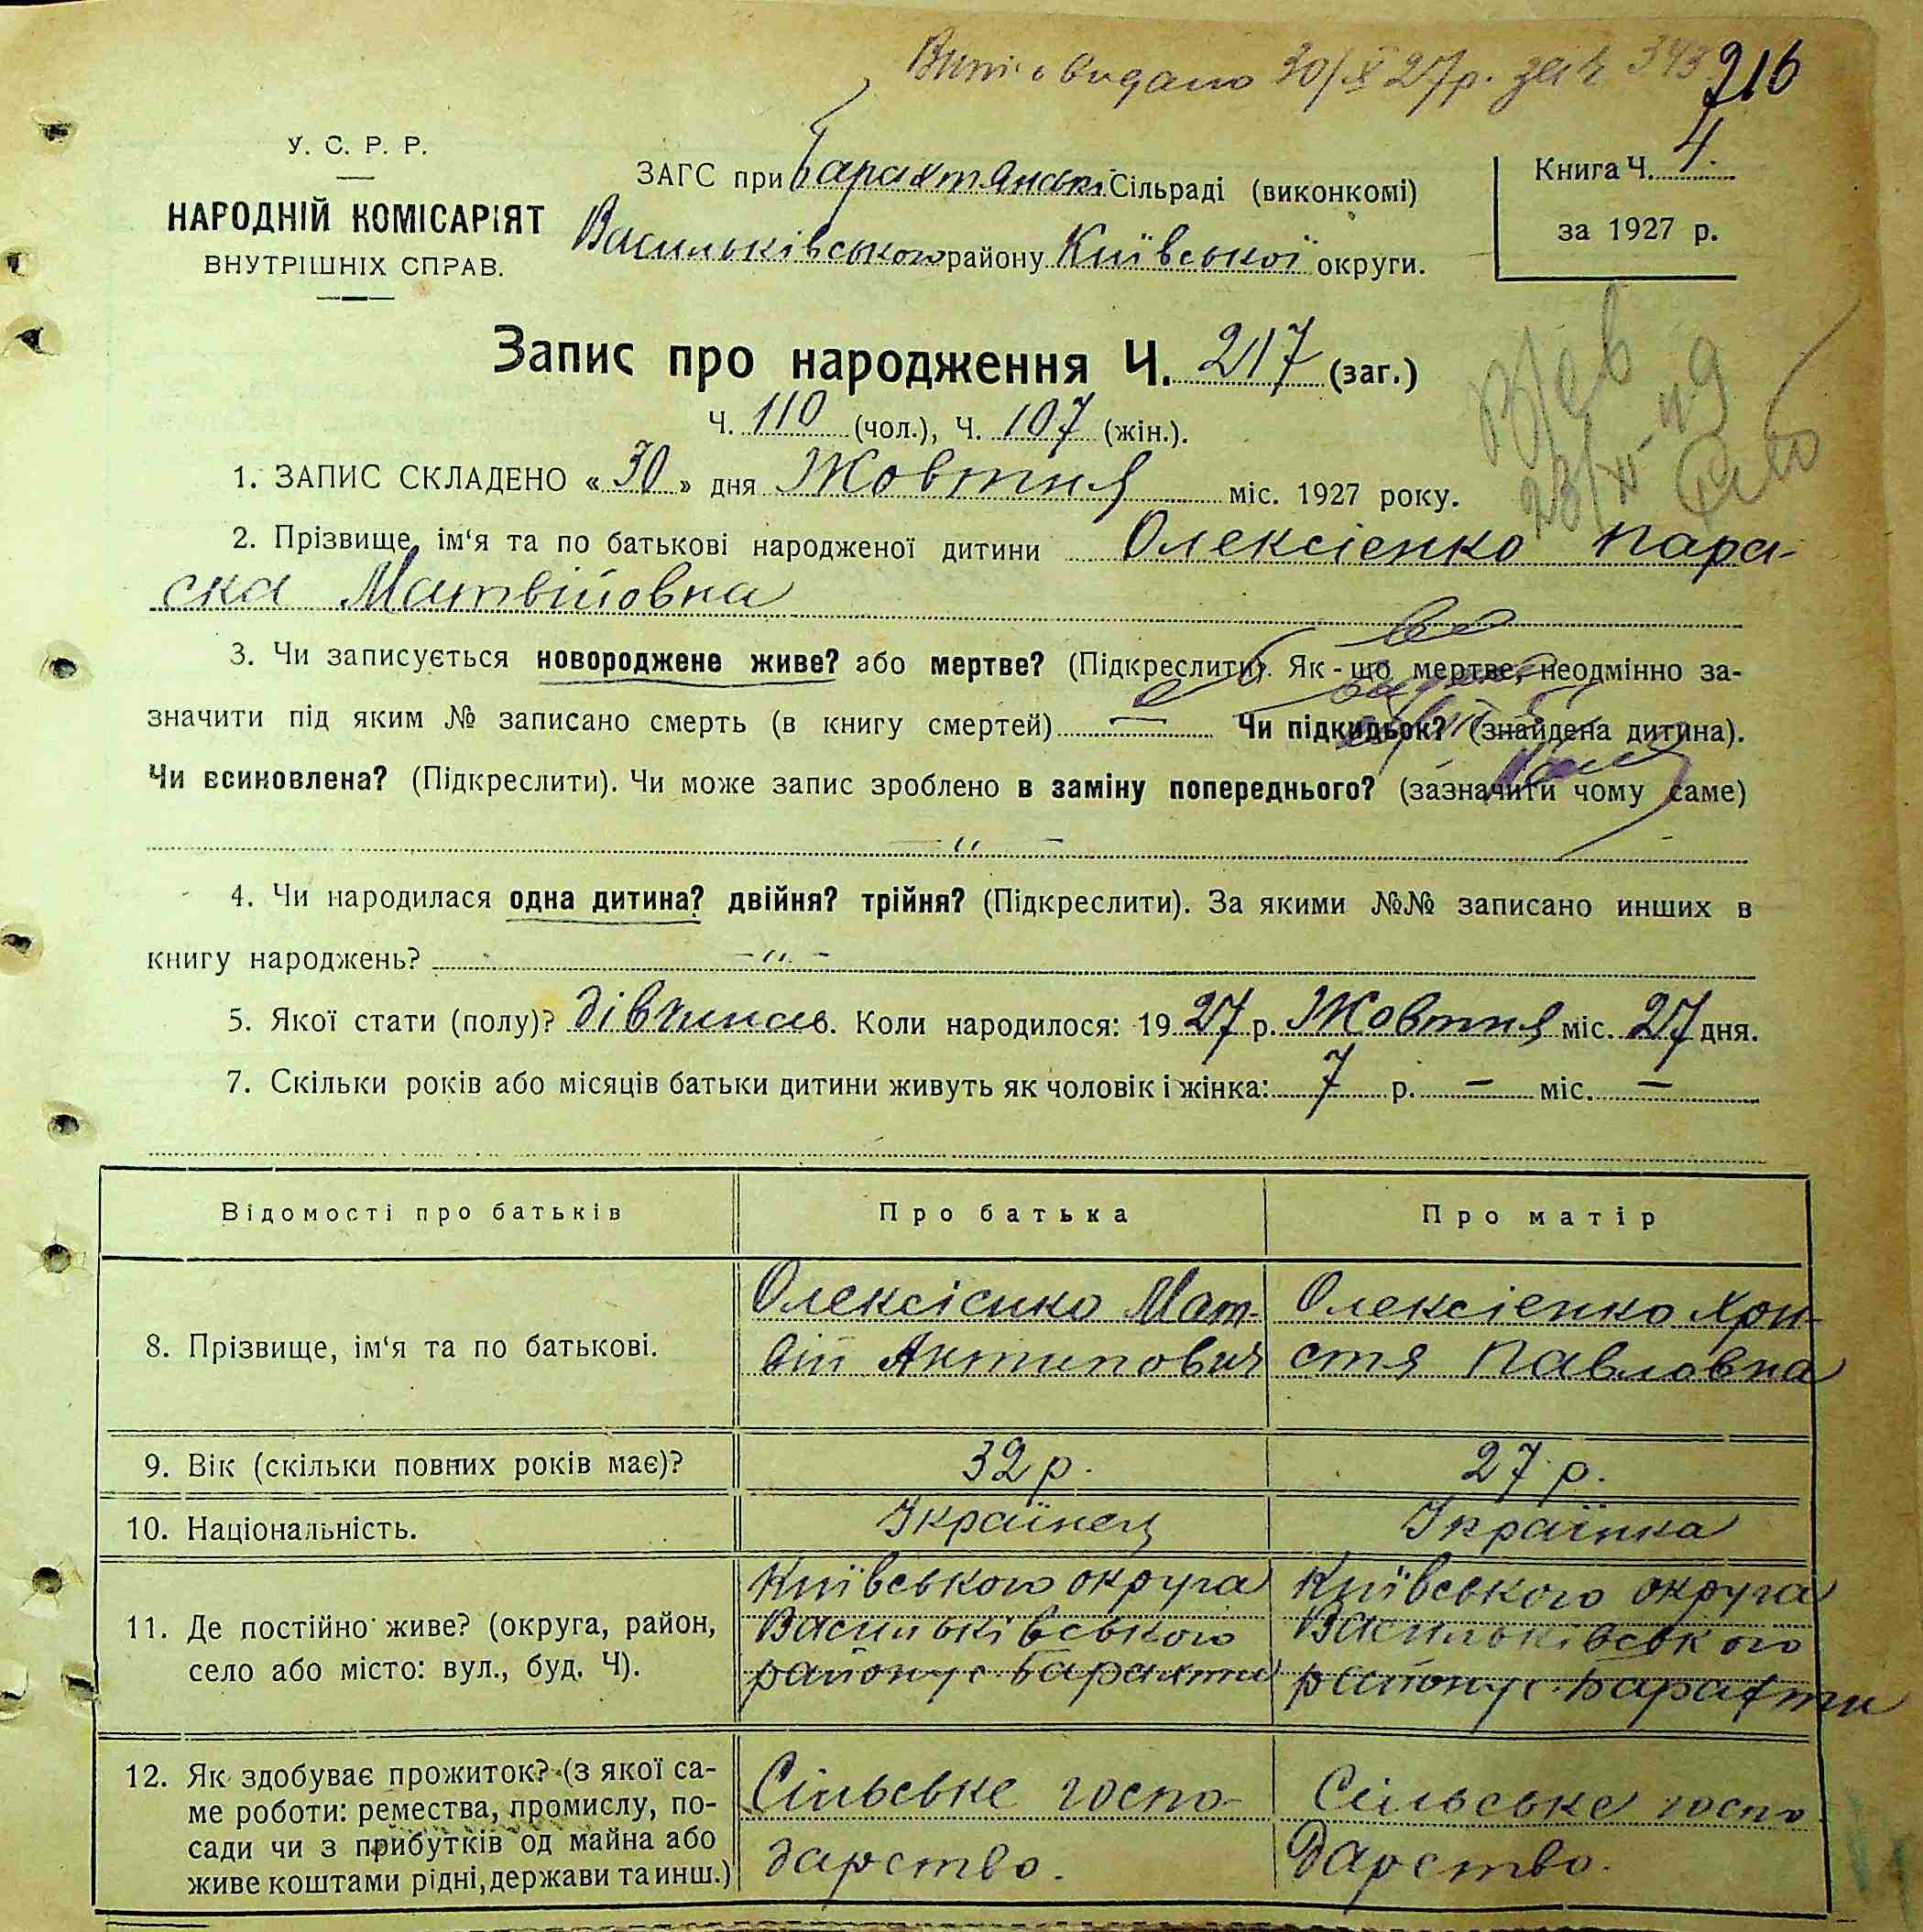 видано 30/X 27р. за № 343
216
У. С. Р. Р.
НАРОДНІЙ КОМІСАРІЯТ
ВНУТРІШНІХ СПРАВ.
ЗАГС при Барахтянські Сільраді (виконкомі)
Васильківського району Київської округи.
Книга Ч. 4.
за 1927 р.
Запис про народження Ч. 217 (заг.)
Ч. 110 (чол.), Ч. 107 (жін.).
1. ЗАПИС СКЛАДЕНО « 30 » дня Жовтня міс. 1927 року.
2. Прізвище, ім'я та по батькові народженої дитини Олексієнко Пара-
ска Матвійовна
3. Чи записується новороджене живе? або мертве? (Підкреслити). Як-що мертве, неодмінно за-
значити під яким № записано смерть (в книгу смертей) — Чи підкидьок? (знайдена дитина).
Чи всиновлена? (Підкреслити). Чи може запис зроблено в заміну попереднього? (зазначити чому саме)
— " —
4. Чи народилася одна дитина? двійня? трійня? (Підкреслити). За якими №№ записано инших в
книгу народжень? — " —
5. Якої стати (полу)? дівчина. Коли народилося: 1927 р. Жовтня міс. 27 дня.
7. Скільки років або місяців батьки дитини живуть як чоловік і жінка: 7 р. — міс. —
Відомості про батьків
Про батька
Про матір
8. Прізвище, ім'я та по батькові.
Олексієнко Мат-
вій Антипович
Олексієнко Хри-
стя Павловна
9. Вік (скільки повних років має)?
32 р.
27 р.
10. Національність.
Українец
Українка
11. Де постійно живе? (округа, район,
село або місто: вул., буд. Ч).
Київського округа
Васильківського
району с Барахти
Київського округа
Васильківського
району с. Барахти
12. Як здобуває прожиток? (з якої са-
ме роботи: ремества, промислу, по-
сади чи з прибутків од майна або
живе коштами рідні, держави та инш.)
Сільське госпо-
дарство.
Сільське госпо
дарство.